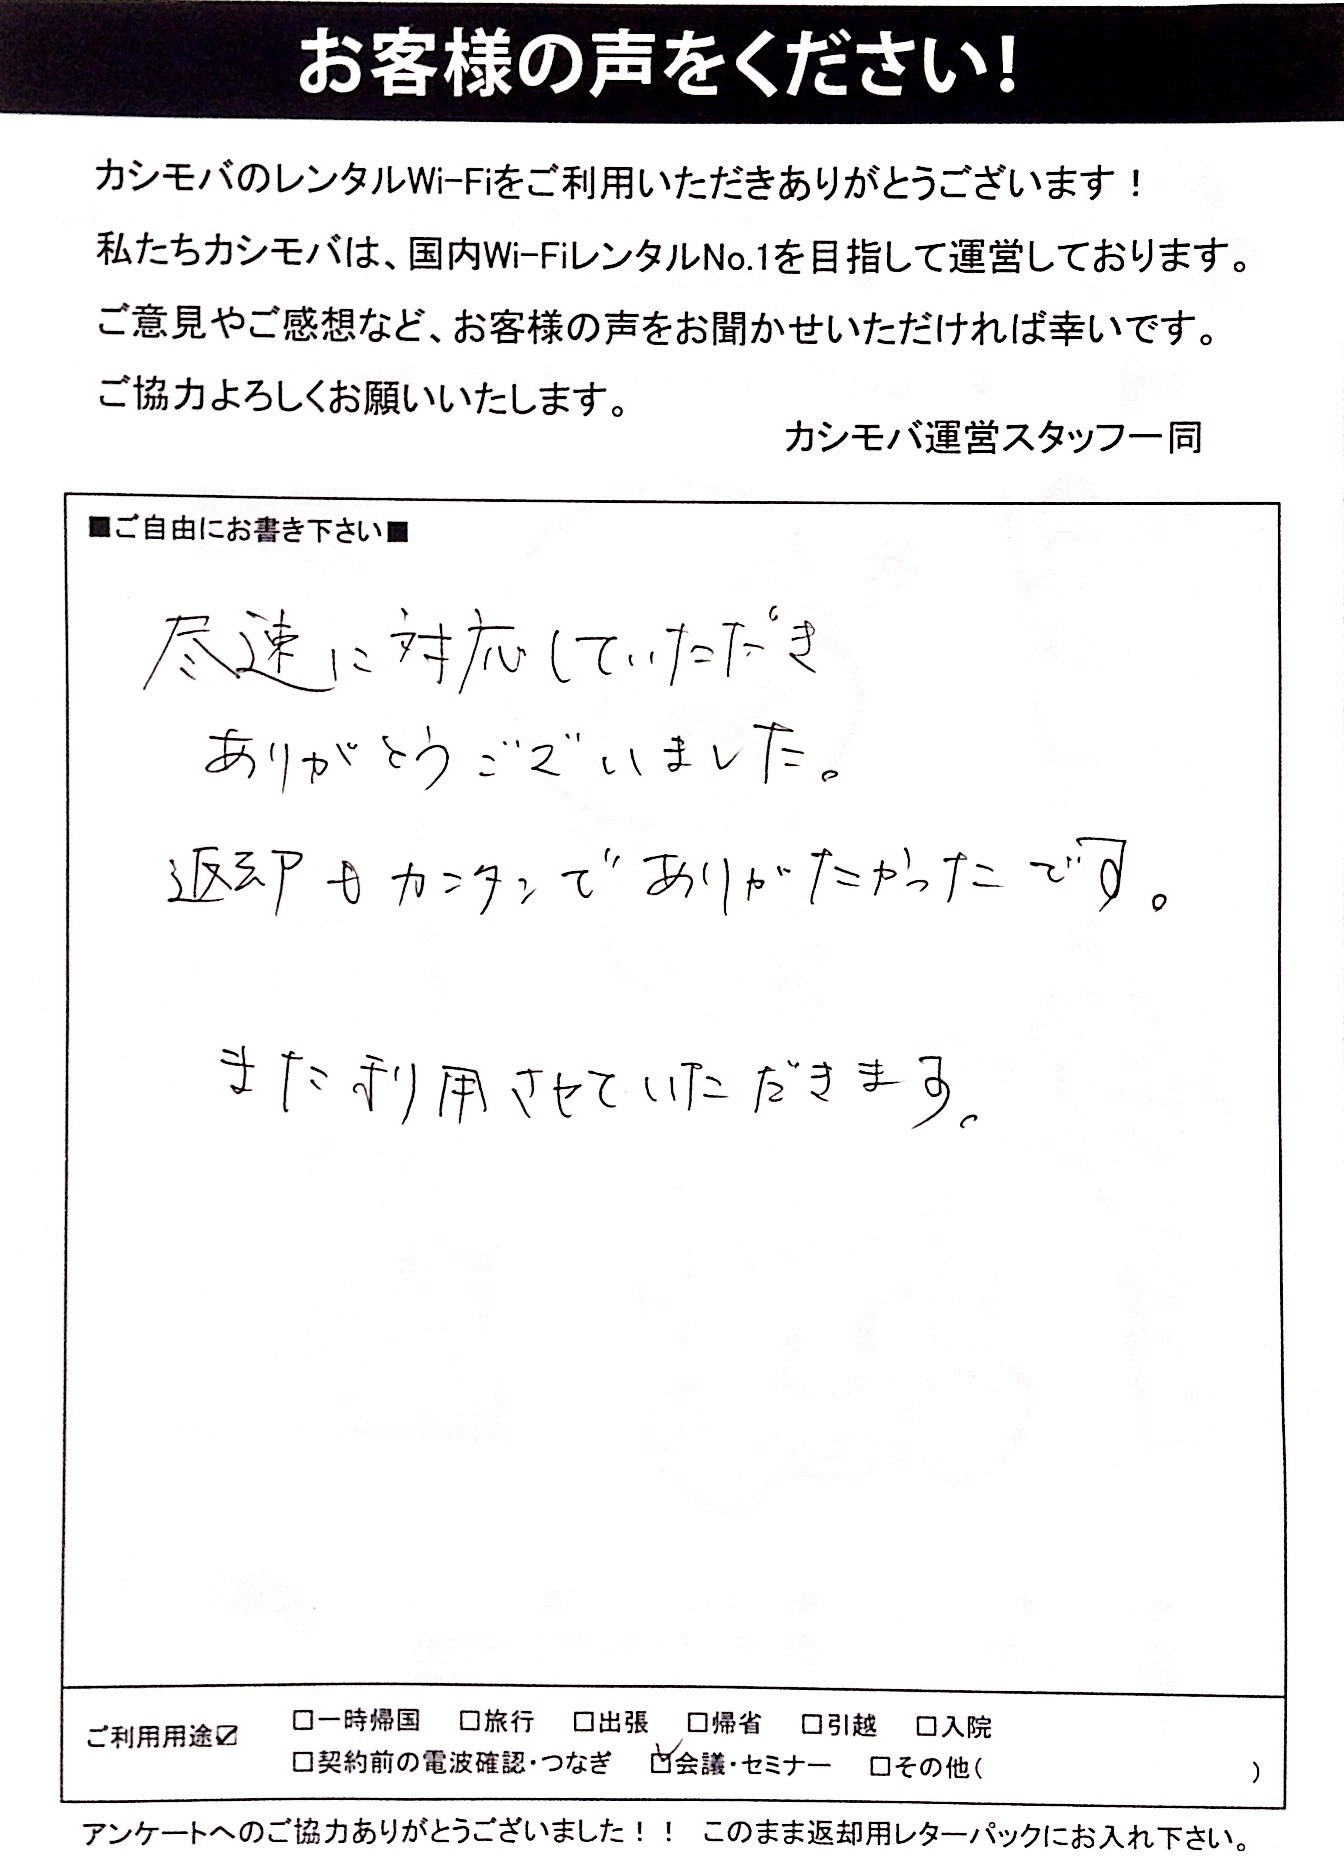 お客様の声をください!
カシモバのレンタルWi-Fiをご利用いただきありがとうございます!
私たちカシモバは、国内Wi-FiレンタルNo.1を目指して運営しております。
ご意見やご感想など、お客様の声をお聞かせいただければ幸いです。
ご協力よろしくお願いいたします。
カシモバ運営スタッフ一同
■ご自由にお書き下さい■
尽速に対応していただき
ありがとうございました。
返却もカンタンでありがたかったです。
また利用させていただきます。
ご利用用途☑ □一時帰国 □旅行 □出張 □帰省 □引越 □入院
□契約前の電波確認・つなぎ ☑会議・セミナー □その他( )
アンケートへのご協力ありがとうございました!! このまま返却用レターパックにお入れ下さい。